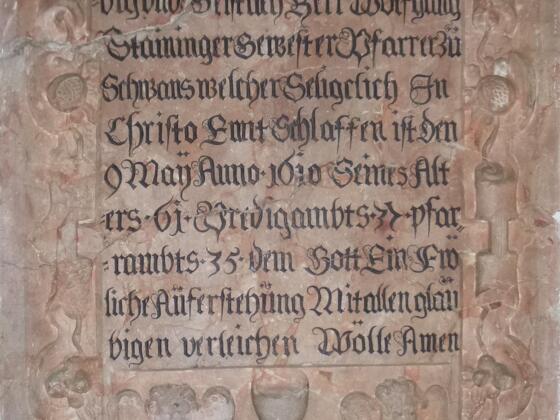 Staininger Gewester Pfarrer Zü
Schwans welcher Seligclich In
Christo Entschlaffen ist den
9 Maÿ Anno · 1610 Seines Alt
ers · 61 · Predigambts · 37 · pfar
rambts · 35 · dem Gott Ein Frö
liche Aüferstehüng Mit allen glaü
bigen verleichen Wölle Amen